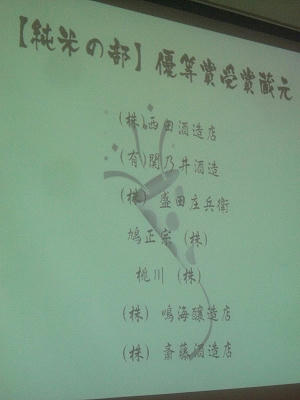 【純米の部】優等賞受賞蔵元
(株)西田酒造店
(有)関乃井酒造
(株) 盛田庄兵衛
鳩正宗 (株)
桃川 (株)
(株) 鳴海醸造店
(株) 斎藤酒造店